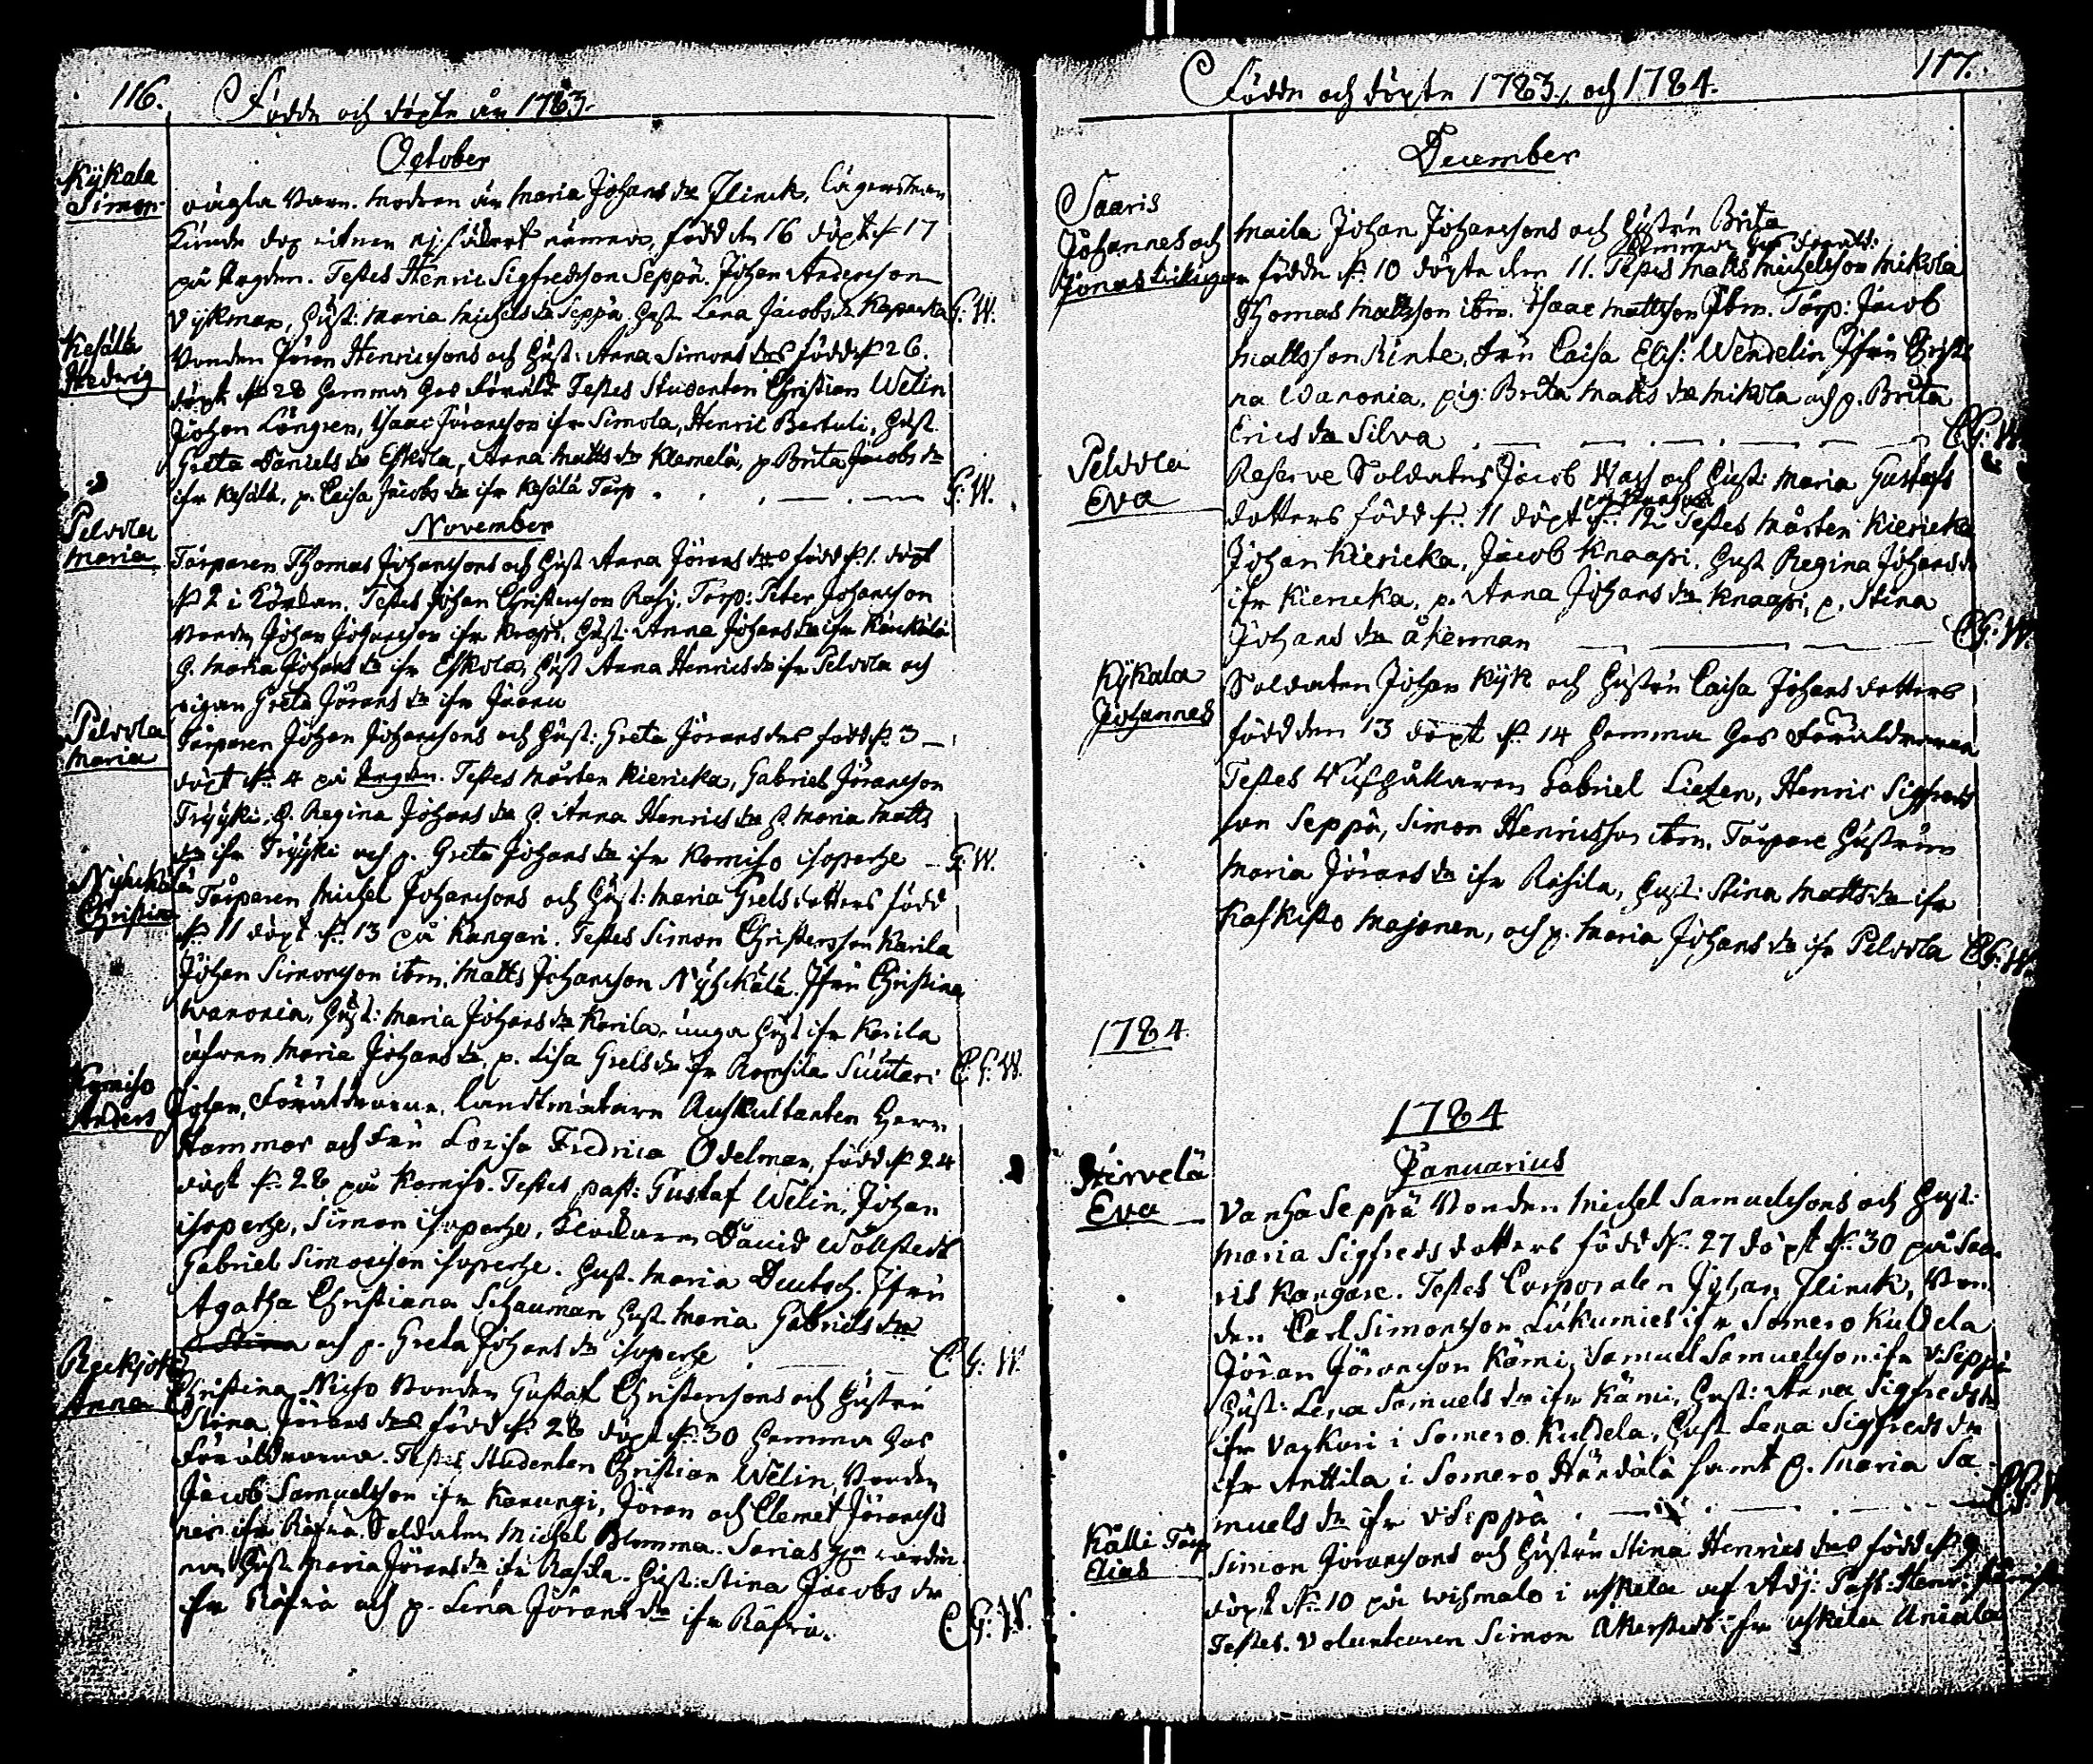 116. Födde och döpte år 1783.
October
Kÿkala
Simon
oägta Barn. Modren är Maria Johans dr Flinck, Lägersman
kunde dop acten ej säkert nämnas, född den 16 döpt d 17
på Jogden. Testes Henric Sigfredsson Seppä. Johan Andersson
Dykman, Hust: Maria Michels dr Seppä, Hust Lena Jacobs dr G: W.
Kesälä
Hedwig
Bonden Jöran Henricssons och Hust: Anna Simons drs född d 26.
döpt d 28 hemma hos Föräld. Testes Studenten Christian Welin
Johan Löngren, Isaac Jöransson ifr Simola, Henric Bertuli, Hust.
Greta Daniels dr Eskola, Anna Matts dr Klemelä, p Brita Jacobs dr
ifr Kesälä, p. Caisa Jacobs dr ifr Kesälä Torp G: W.
November
Pelvola
Maria
Torparen Thomas Johanssons och Hust Anna Jörans drs född d 1. döpt
d 2 i Kÿrkan. Testes Johan Christersson Rasi, Torp: Peter Johansson
Bonden Johan Johansson ifr Hust: Anna Johans dr ifr
H. Maria Johans dr ifr Eskola, Hust Anna Henrics dr ifr Pelvola och
pigan Greta Jörans dr ifr
Pelvola
Maria
Torparen Johan Johanssons och Hust: Greta Jörans drs född d. 3
döpt d. 4 på Jogden. Testes Mårten Kiericka, Gabriel Jöransson
Trÿÿki. H. Regina Johans dr H. Anna Henrics dr H. Maria Matts
dr ifr Trÿÿki och p. Greta Johans dr ifr Komiso isoperhe G: W.
Nÿhckälä
Christina
Torparen Michel Johanssons och Hust: Maria Grels dotters född
d. 11 döpt d. 13 på Kangari. Testes Simon Christersson Karila
Johan Simonsson ibm. Matts Johansson Nÿhckälä. Jfru Christina
Wanonia, Hust: Maria Johans dr Karila, unga Hust ifr Karila
äfwen Maria Johans dr, p. Lisa Grels dr ifr Suutari C: G: W.
Komiso
Anders Johan,
Föräldrarne, Landtmätare Auskultanten Herr
Hammar och Fru Lovisa Fredrica Odelman, född d 24
döpt d. 28 på Komiso. Testes past: Gustaf Welin, Johan
isoperhe, Simon isoperhe, Klockaren David Wollstedt
Gabriel Simonsson isoperhe. Hust. Maria Deutsch. Jfru
Agatha Christiana Schauman Hust Maria Gabriels dr
och p. Greta Johans dr isoperhe C: G: W.
Anna Christina
Bonden Gustaf Christerssons och Hustru
Stina Jörans drs född d. 28 döpt d. 30 hemma hos
Föräldrarna. Testes Studenten Christian Welin, Bonden
Jacob Samuelsson ifr Kanungi, Jöran och Clemet Jöransso
ner ifr Räfvä. Soldaten Michel Blomma.
Hust Maria Jörans dr ifr Rasila. Hust: Stina Jacobs dr
ifr Räfvä och p. Lena Jörans dr ifr Räfvä. C: G: W.
Födde och döpte 1783, och 1784. 117.
December
Saaris
Johannes och
Jonas
Maila Johan Johanssons och Hustru Brita
hemma hos Föräld:
födde d. 10 döpte den 11. Testes Matts Michelsson Mikola
Thomas Mattsson ibm. Isaac Mattsson ibm. Torp: Jacob
Mattsson Rinte, Fru Caisa Elis: Wendelin Jfru Christi
na Wanonia, pig: Brita Matts dr Mikola och p. Brita
Erics dr Silva C: G: W.
Pelvola
Eva
Reserve Soldatens Jacob Wass och Hust: Maria Gustafs
dotters född d. 11 döpt d. 12 Testes Mårten Kiericka
Johan Kiericka, Jacob Knaapi, Hust Regina Johans dr
ifr Kiericka, p. Anna Johans dr Knaapi, p. Stina
Johans dr Åkerman C: G: W.
Kÿkala
Johannes
Soldaten Johan Kÿk och Hustru Caisa Johans dotters
född den 13 döpt d. 14 hemma hos Föräldrarna
Testes Gabriel Lietzen, Henric Sigfreds
son Seppä, Simon Henricsson ibm. Torpare Hustrun
Maria Jörans dr ifr Rasila, Hust: Stina Matts dr ifr
Kaskisto Majanen, och p. Maria Johans dr ifr Pelvola C: G: W.
1784.
1784
Januarius
Hirvelä
Eva
Vanha Seppä Bonden Michel Samuelssons och Hust:
Maria Sigfreds dotters född d. 27 döpt d. 30 på Saa
ris Kangare. Testes Corporalen Johan Flinck, Bon
den Carl Simonsson Lukumies ifr Somero Kuldela
Jöran Jöransson Kärni, Samuel Samuelsson ifr V:Seppä
Hust: Lena Samuels dr ifr Kärni, Hust: Anna Sigfreds dr
ifr i Somero Kuldela, Hust Lena Sigfreds dr
ifr Anttila i Somero Härdälä samt p. Maria Sa
muels dr ifr V:Seppä C: G: W.
Källi Torp
Elias
Simon Jöranssons och Hustru Stina Henrics drs född d 9
döpt d. 10 på Wismalo i Uskela af Adj: Past: Henr:
Testes. Volunteuren Simon Åkerstedt ifr Uskela